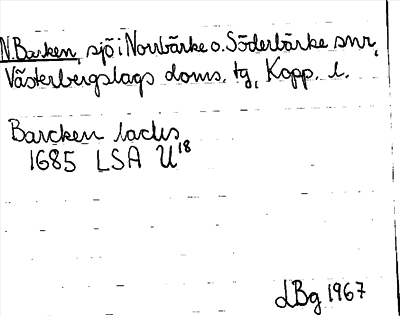 N. Barken, sjö i Norrbärke o. Söderbärke snr,
Västerbergslags doms. tg, Kopp. l.
Barcken lacus
1685 LSA U18
LBg 1967